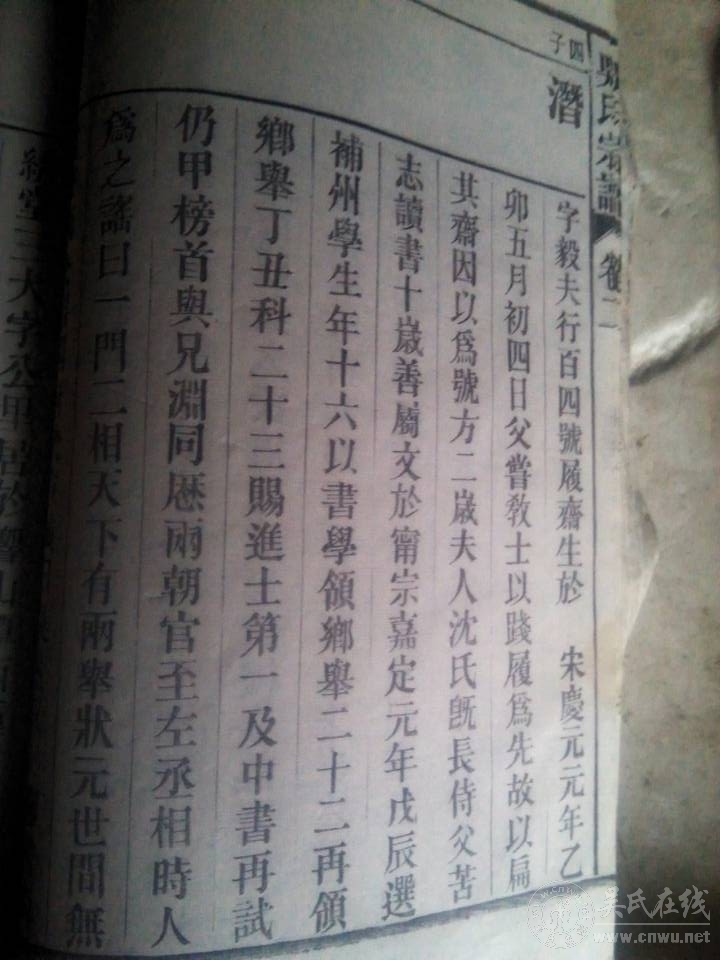 吳氏宗譜 卷二
四子
潛
字毅夫行百四號履齋生於 宋慶元元年乙
卯五月初四日父嘗敎士以踐履爲先故以扁
其齋因以爲號方二歲夫人沈氏旣長侍父苦
志讀書十歲善屬文於甯宗嘉定元年戊辰選
補州學生年十六以書學領鄉舉二十二再領
鄉舉丁丑科二十三賜進士第一及中書再試
仍甲榜首與兄淵同歷兩朝官至左丞相時人
爲之謠曰一門二相天下有兩舉狀元世間無
堂三大字公里居於
吴氏在线
www.cnwu.net